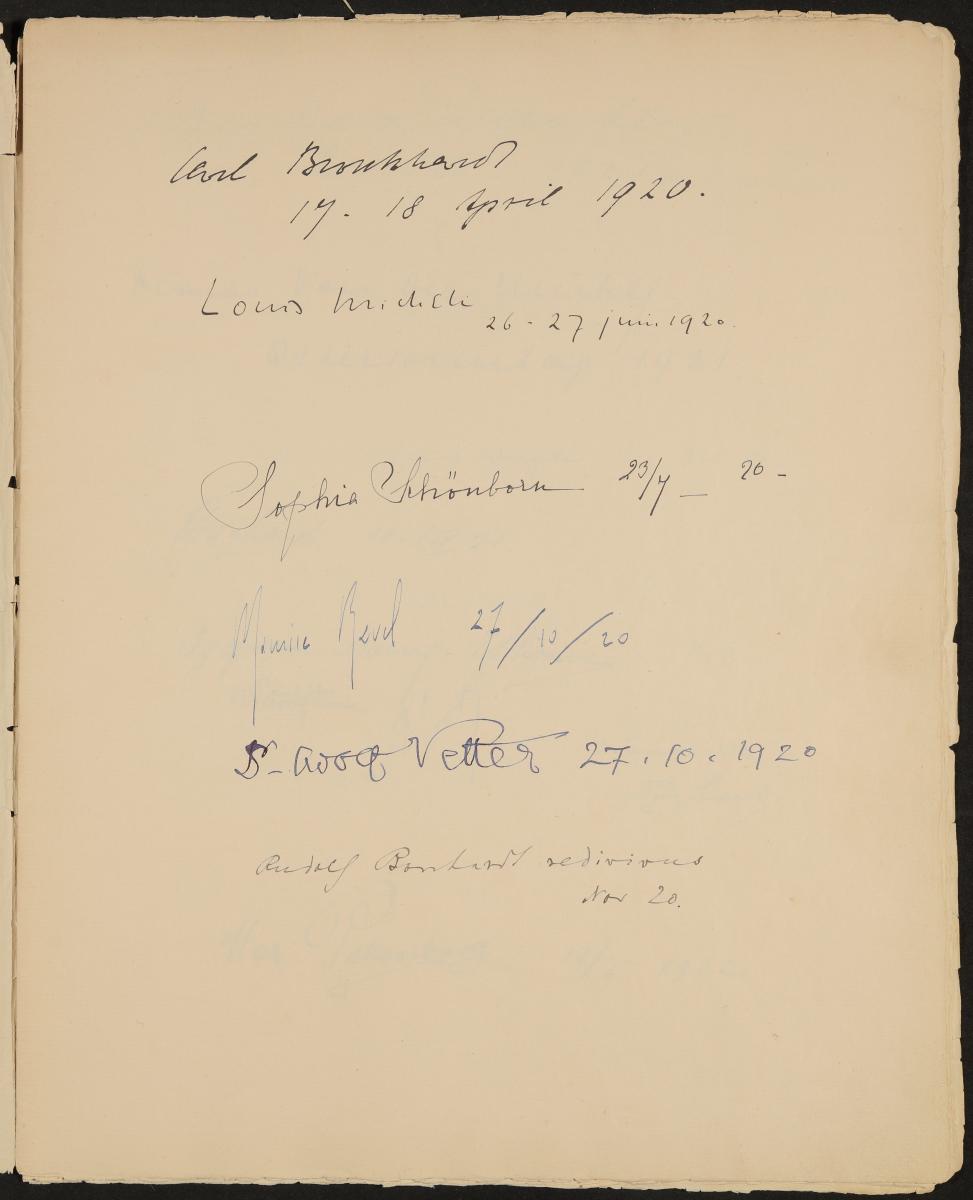 Carl Burckhardt
17. 18 April 1920.
Louis Micheli
26 - 27 juin 1920.
Sophia Schönborn 23/7 _ 20 -
Maurice Ravel 27/10/20
Dr. Adolf Vetter 27.10.1920
Rudolf Borchardt redivivus
Nov 20.